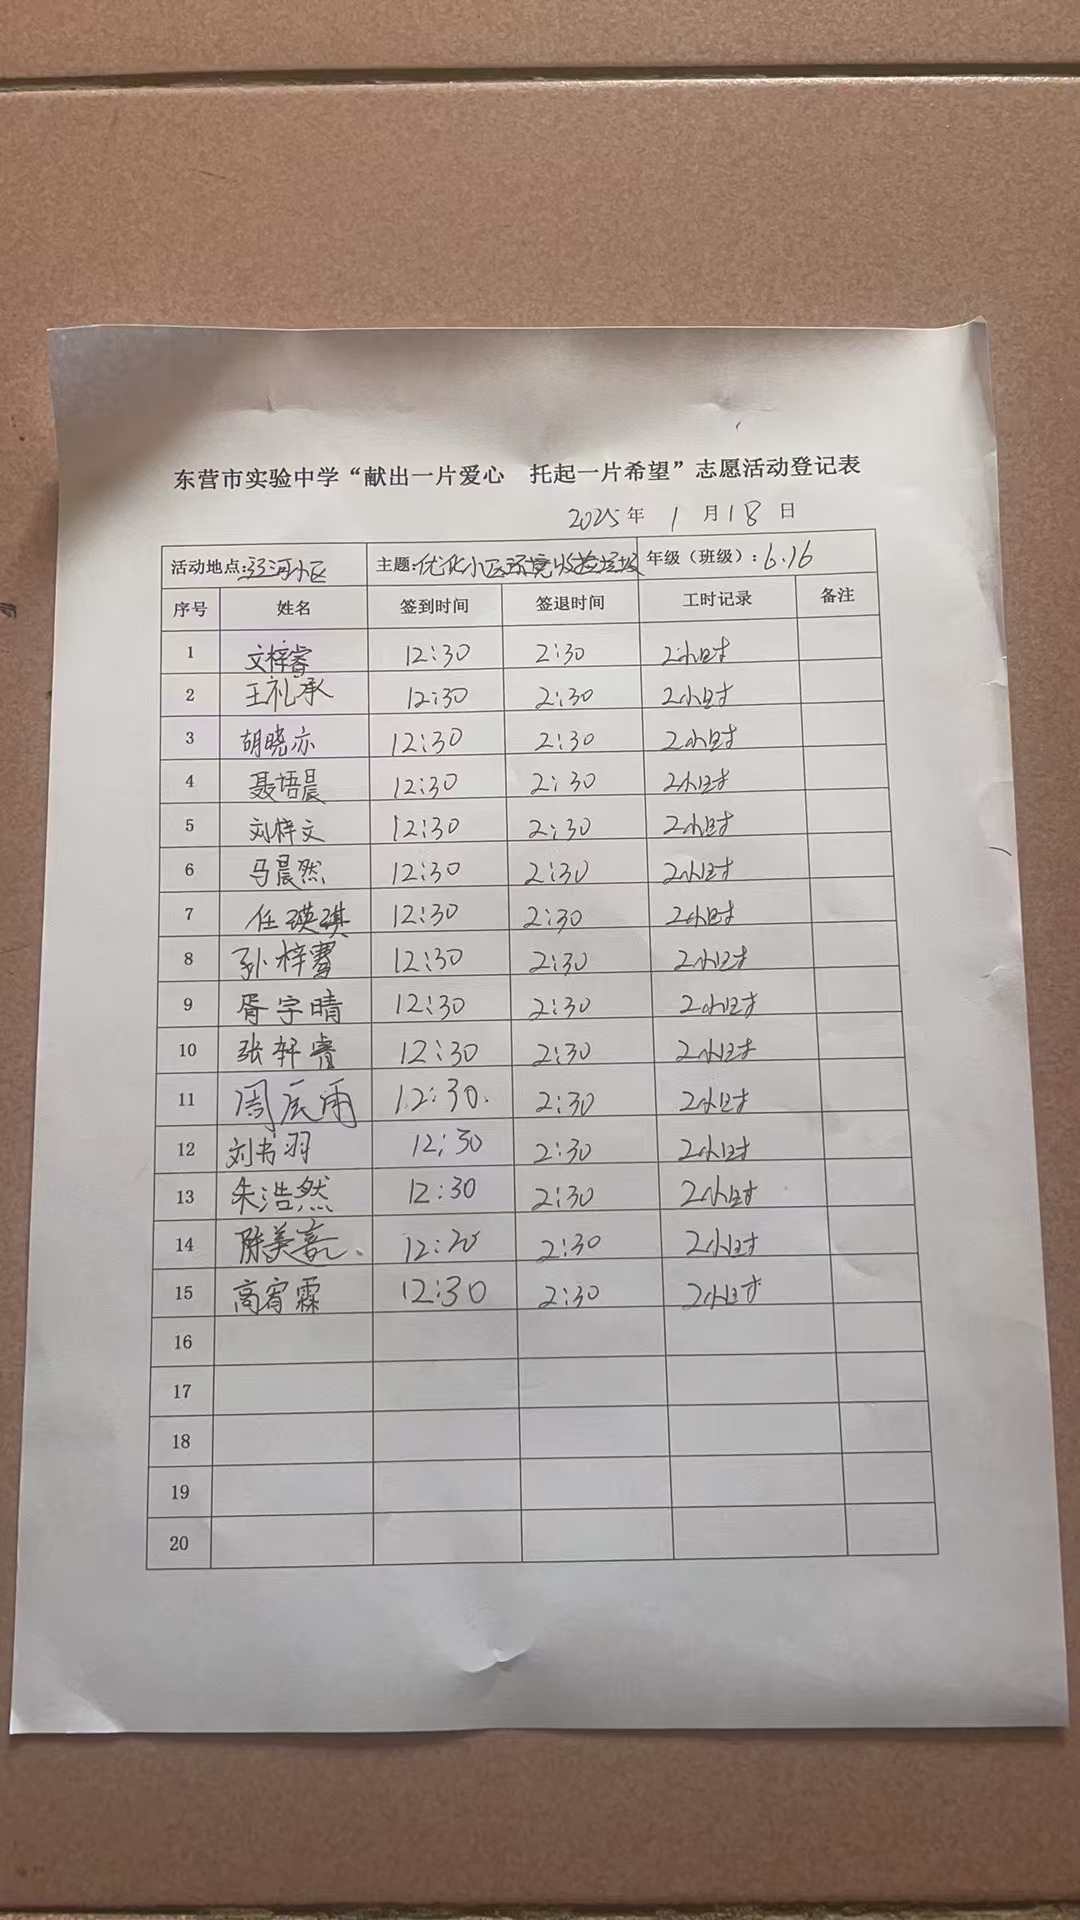 东营市实验中学“献出一片爱心 托起一片希望”志愿活动登记表
2025年 1 月 18 日
活动地点:河小区 主题:优化小区环境收捡垃圾 年级（班级）: 6.16
序号 姓名 签到时间 签退时间 工时记录 备注
1 文梓睿 12:30 2:30 2小时
2 王礼承 12:30 2:30 2小时
3 胡晓亦 12:30 2:30 2小时
4 聂梧晨 12:30 2:30 2小时
5 刘梓文 12:30 2:30 2小时
6 马晨然 12:30 2:30 2小时
7 任瑛琪 12:30 2:30 2小时
8 孙梓骞 12:30 2:30 2小时
9 胥宇晴 12:30 2:30 2小时
10 张轩睿 12:30 2:30 2小时
11 周辰雨 12:30. 2:30 2小时
12 刘书羽 12:30 2:30 2小时
13 朱浩然 12:30 2:30 2小时
14 陈美 2:30 2小时
15 高宥霖 12:30 2:30 2小时
16
17
18
19
20